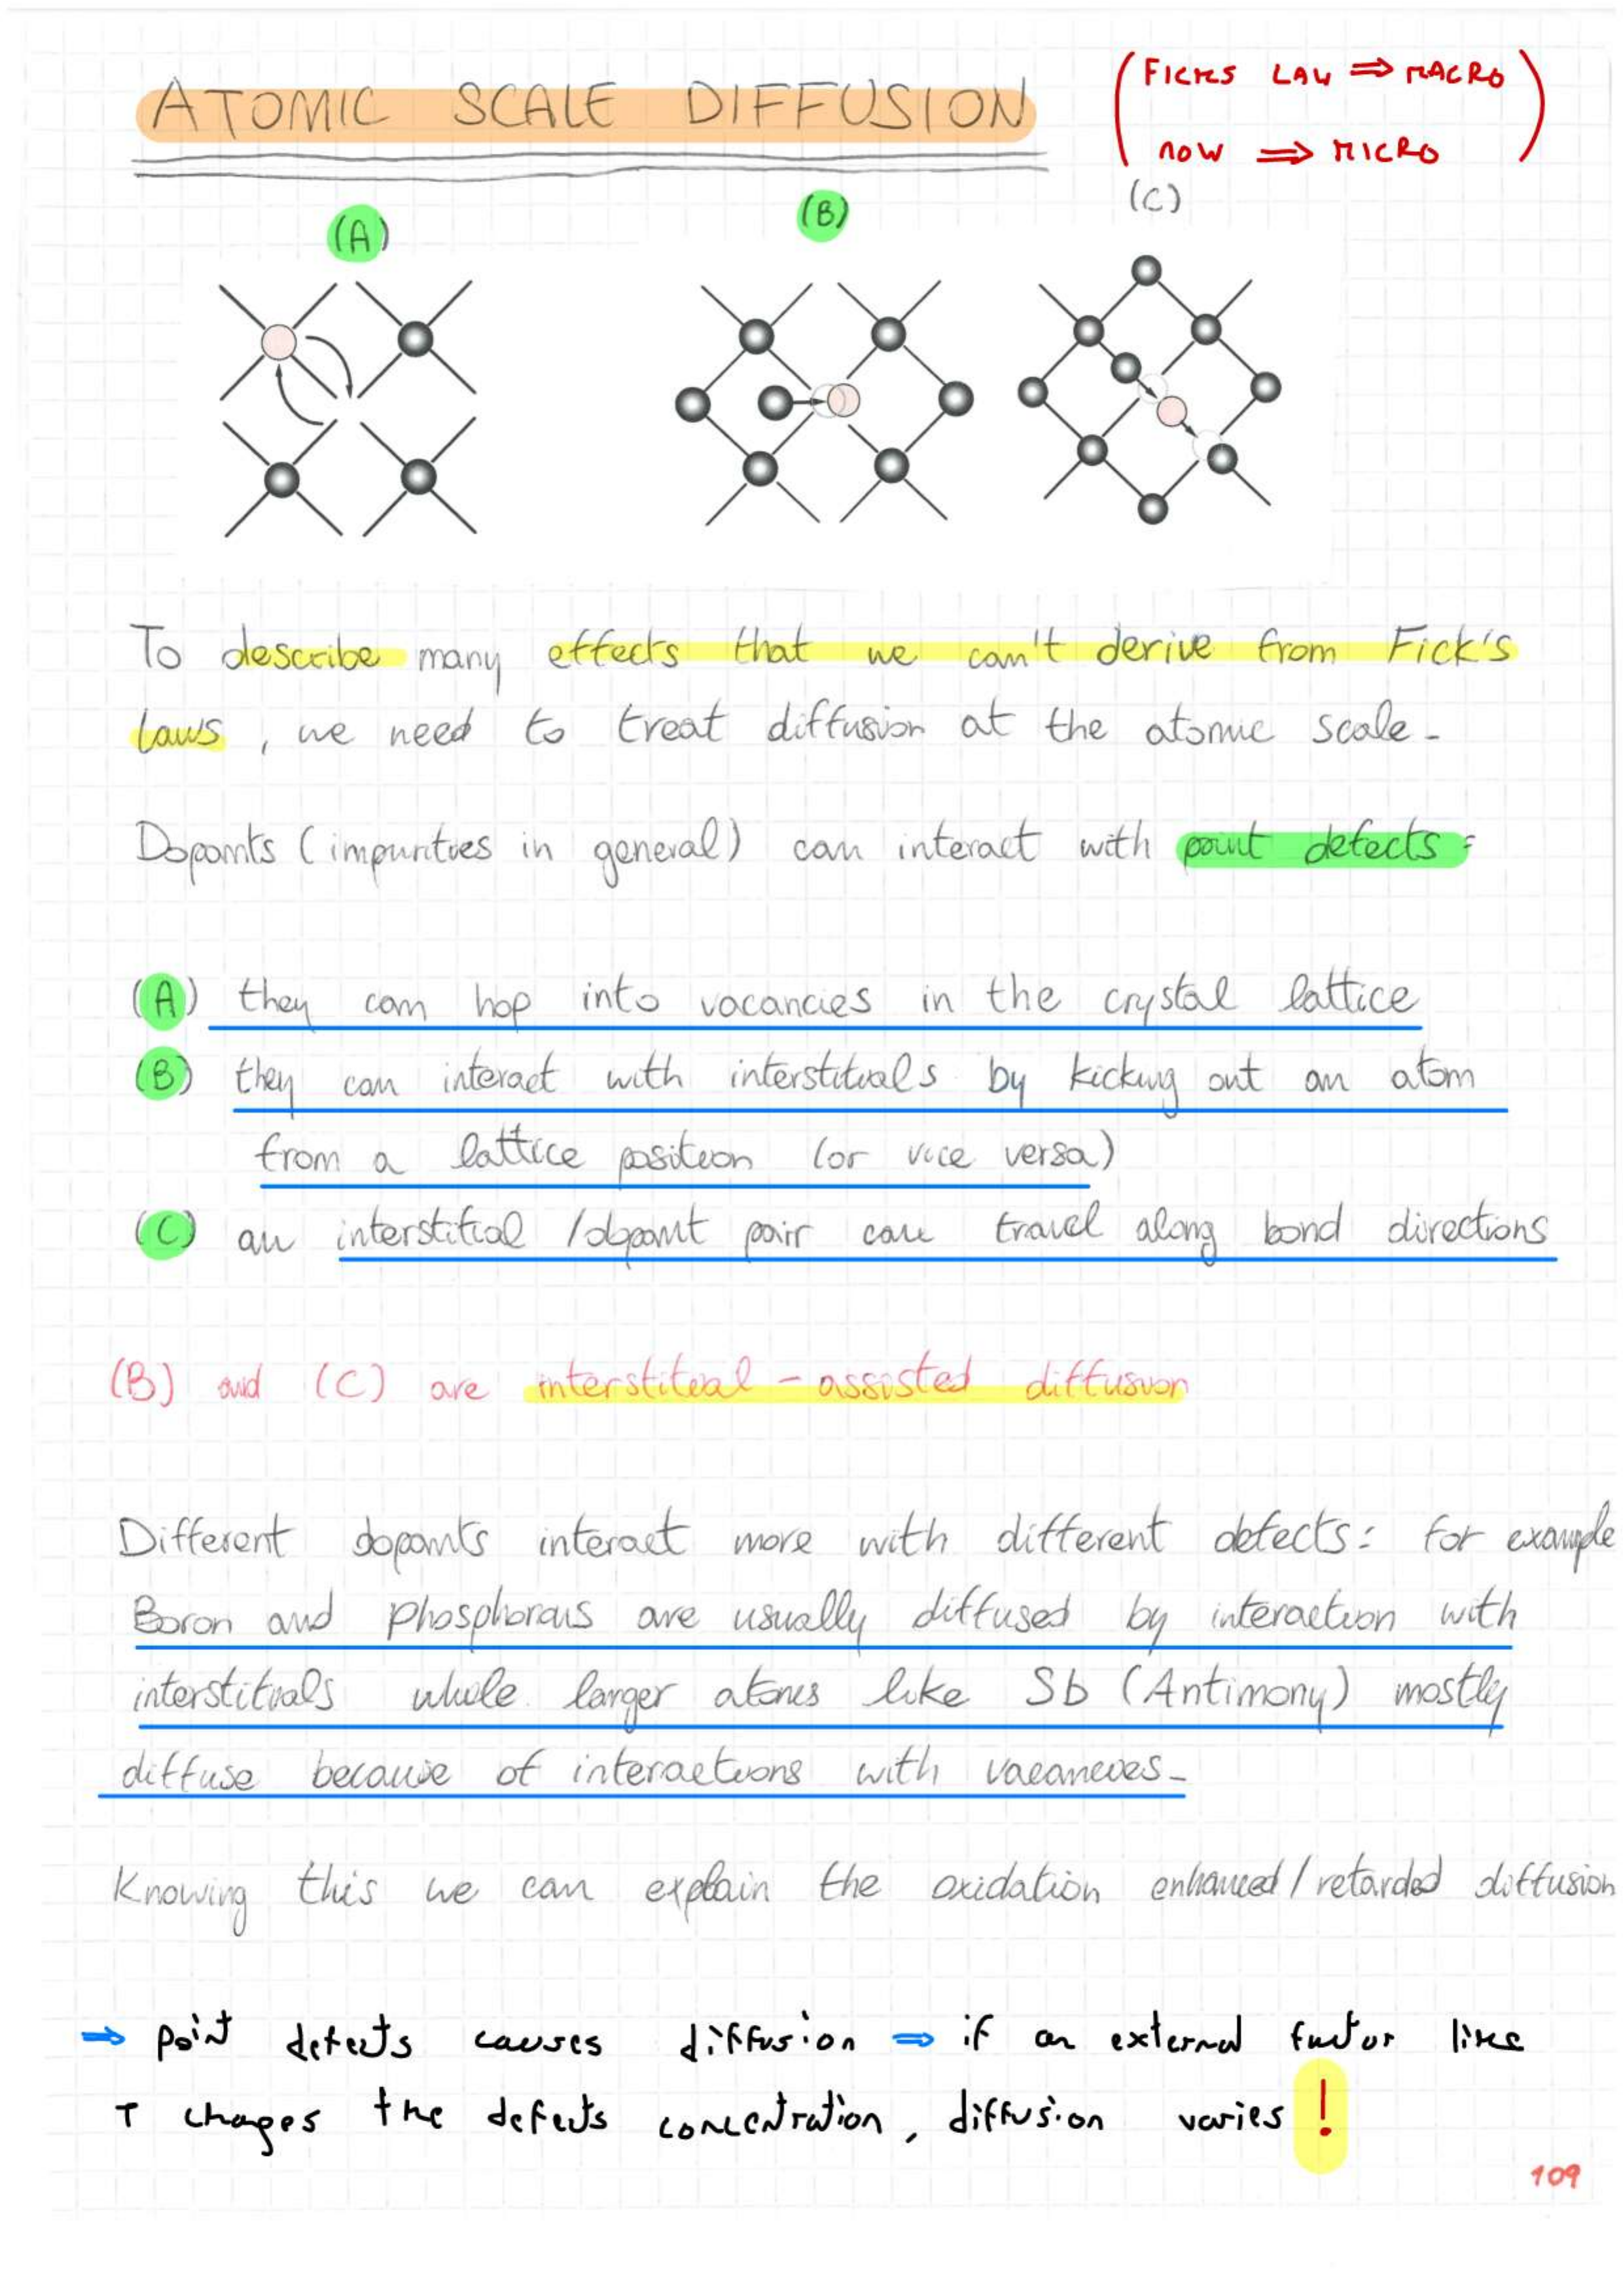 ATOMIC SCALE DIFFUSION
(FICKS LAW ⇒ MACRO
NOW ⇒ MICRO)
(A)
(B)
(C)
To describe many effects that we can't derive from Fick's
laws, we need to treat diffusion at the atomic scale.
Dopants (impurities in general) can interact with point defects:
(A) they can hop into vacancies in the crystal lattice
(B) they can interact with interstitials by kicking out an atom
from a lattice position (or vice versa)
(C) an interstitial / dopant pair can travel along bond directions
(B) and (C) are interstitial-assisted diffusion
Different dopants interact more with different defects: for example
Boron and phosphorous are usually diffused by interaction with
interstitials while larger atoms like Sb (Antimony) mostly
diffuse because of interactions with vacancies.
Knowing this we can explain the oxidation enhanced / retarded diffusion
⇒ point defects causes diffusion ⇒ if an external factor like
T changes the defects concentration, diffusion varies !
109